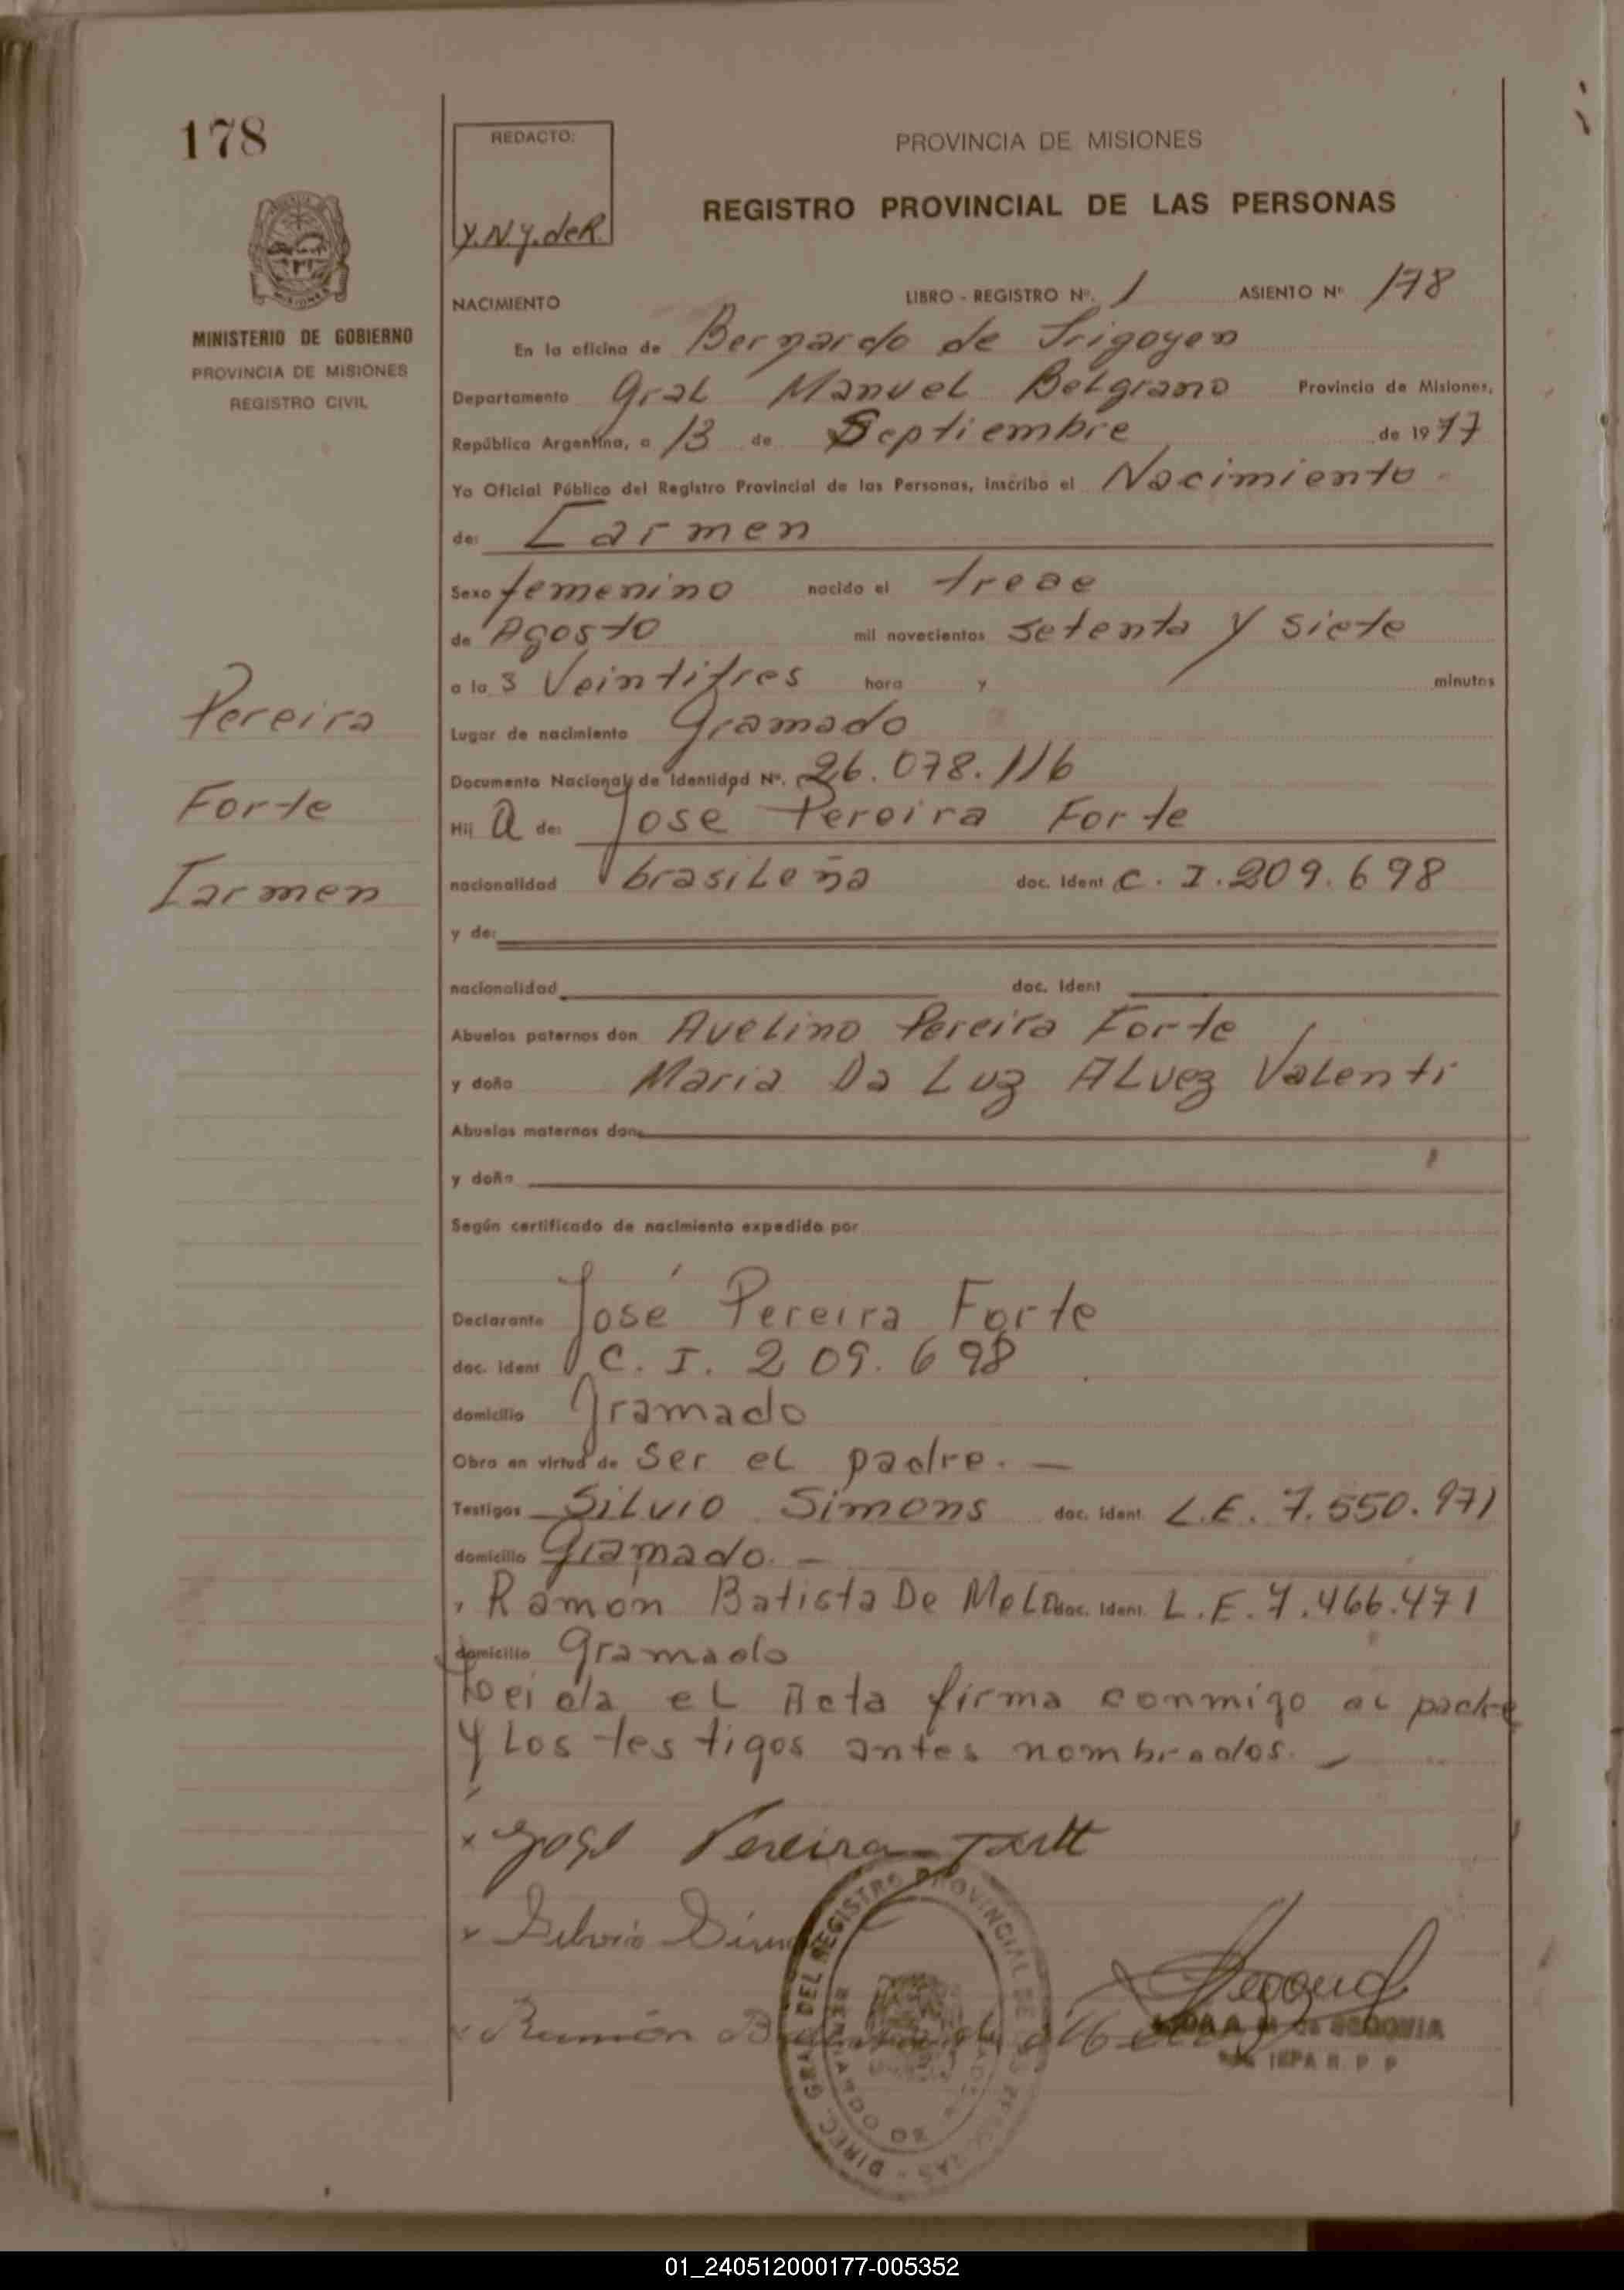 178
REDACTO:
Y.N.Y.deR.
PROVINCIA DE MISIONES
REGISTRO PROVINCIAL DE LAS PERSONAS
MINISTERIO DE GOBIERNO
PROVINCIA DE MISIONES
REGISTRO CIVIL
NACIMIENTO LIBRO - REGISTRO Nº. 1 ASIENTO Nº 178
En la oficina de Bernardo de Irigoyen
Departamento Gral Manuel Belgrano Provincia de Misiones,
República Argentina, a 13 de Septiembre de 1977
Yo Oficial Público del Registro Provincial de las Personas, inscribo el Nacimiento
de: Carmen
Sexo femenino nacido el trece
de Agosto mil novecientos setenta y siete
a la s Veintitres hora y minutos
Lugar de nacimiento Gramado
Documento Nacional de Identidad Nº. 26.078.116
Pereira
Forte
Carmen
Hij a de: Jose Pereira Forte
nacionalidad brasileña doc. Ident C. I. 209.698
y de:
nacionalidad doc. Ident
Abuelos paternos don Avelino Pereira Forte
y doña Maria Da Luz Alvez Valenti
Abuelos maternos don
y doña
Según certificado de nacimiento expedido por
Declarante José Pereira Forte
doc. ident C. I. 209.698
domicilio Gramado
Obra en virtud de ser el padre. —
Testigos Silvio Simons doc. ident. L.E. 7.550.971
domicilio Gramado. —
Ramón Batista De Melo doc. Ident. L.E. 7.466.471
domicilio Gramado
Leida el Acta firma conmigo el padre
y los testigos antes nombrados. —
x José Pereira Forte
x Silvio Simons
x Ramón
DIREC. GRAL DEL REGISTRO PROVINCIAL DE LAS PERSONAS
BERNARDO DE
DE SEGOVIA
R. P. P
01_240512000177-005352